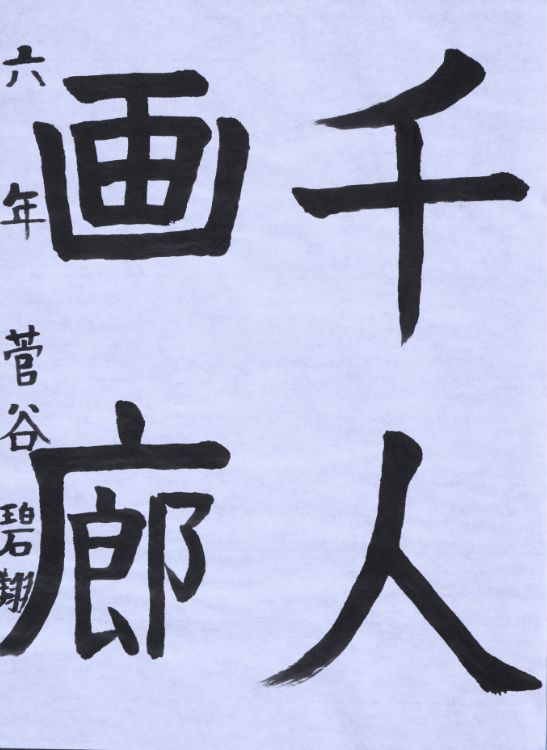 千人
画廊
六年 菅谷碧翔